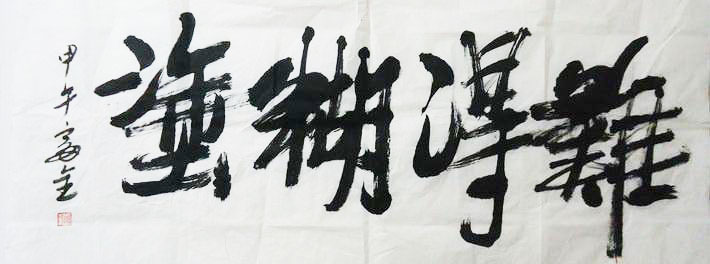 難得糊塗
甲午